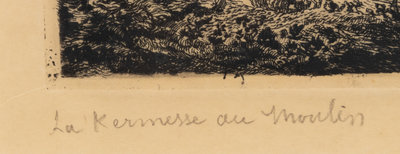 La Kermesse au Moulin